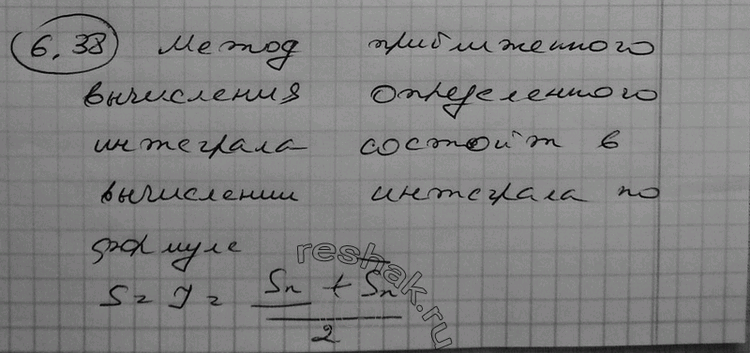 6.38 Метод приближенного
вычисления определенного
интеграла состоит в
вычислении интеграла по
формуле
reshak.ru
S = J = (S̲n + S̅n) / 2